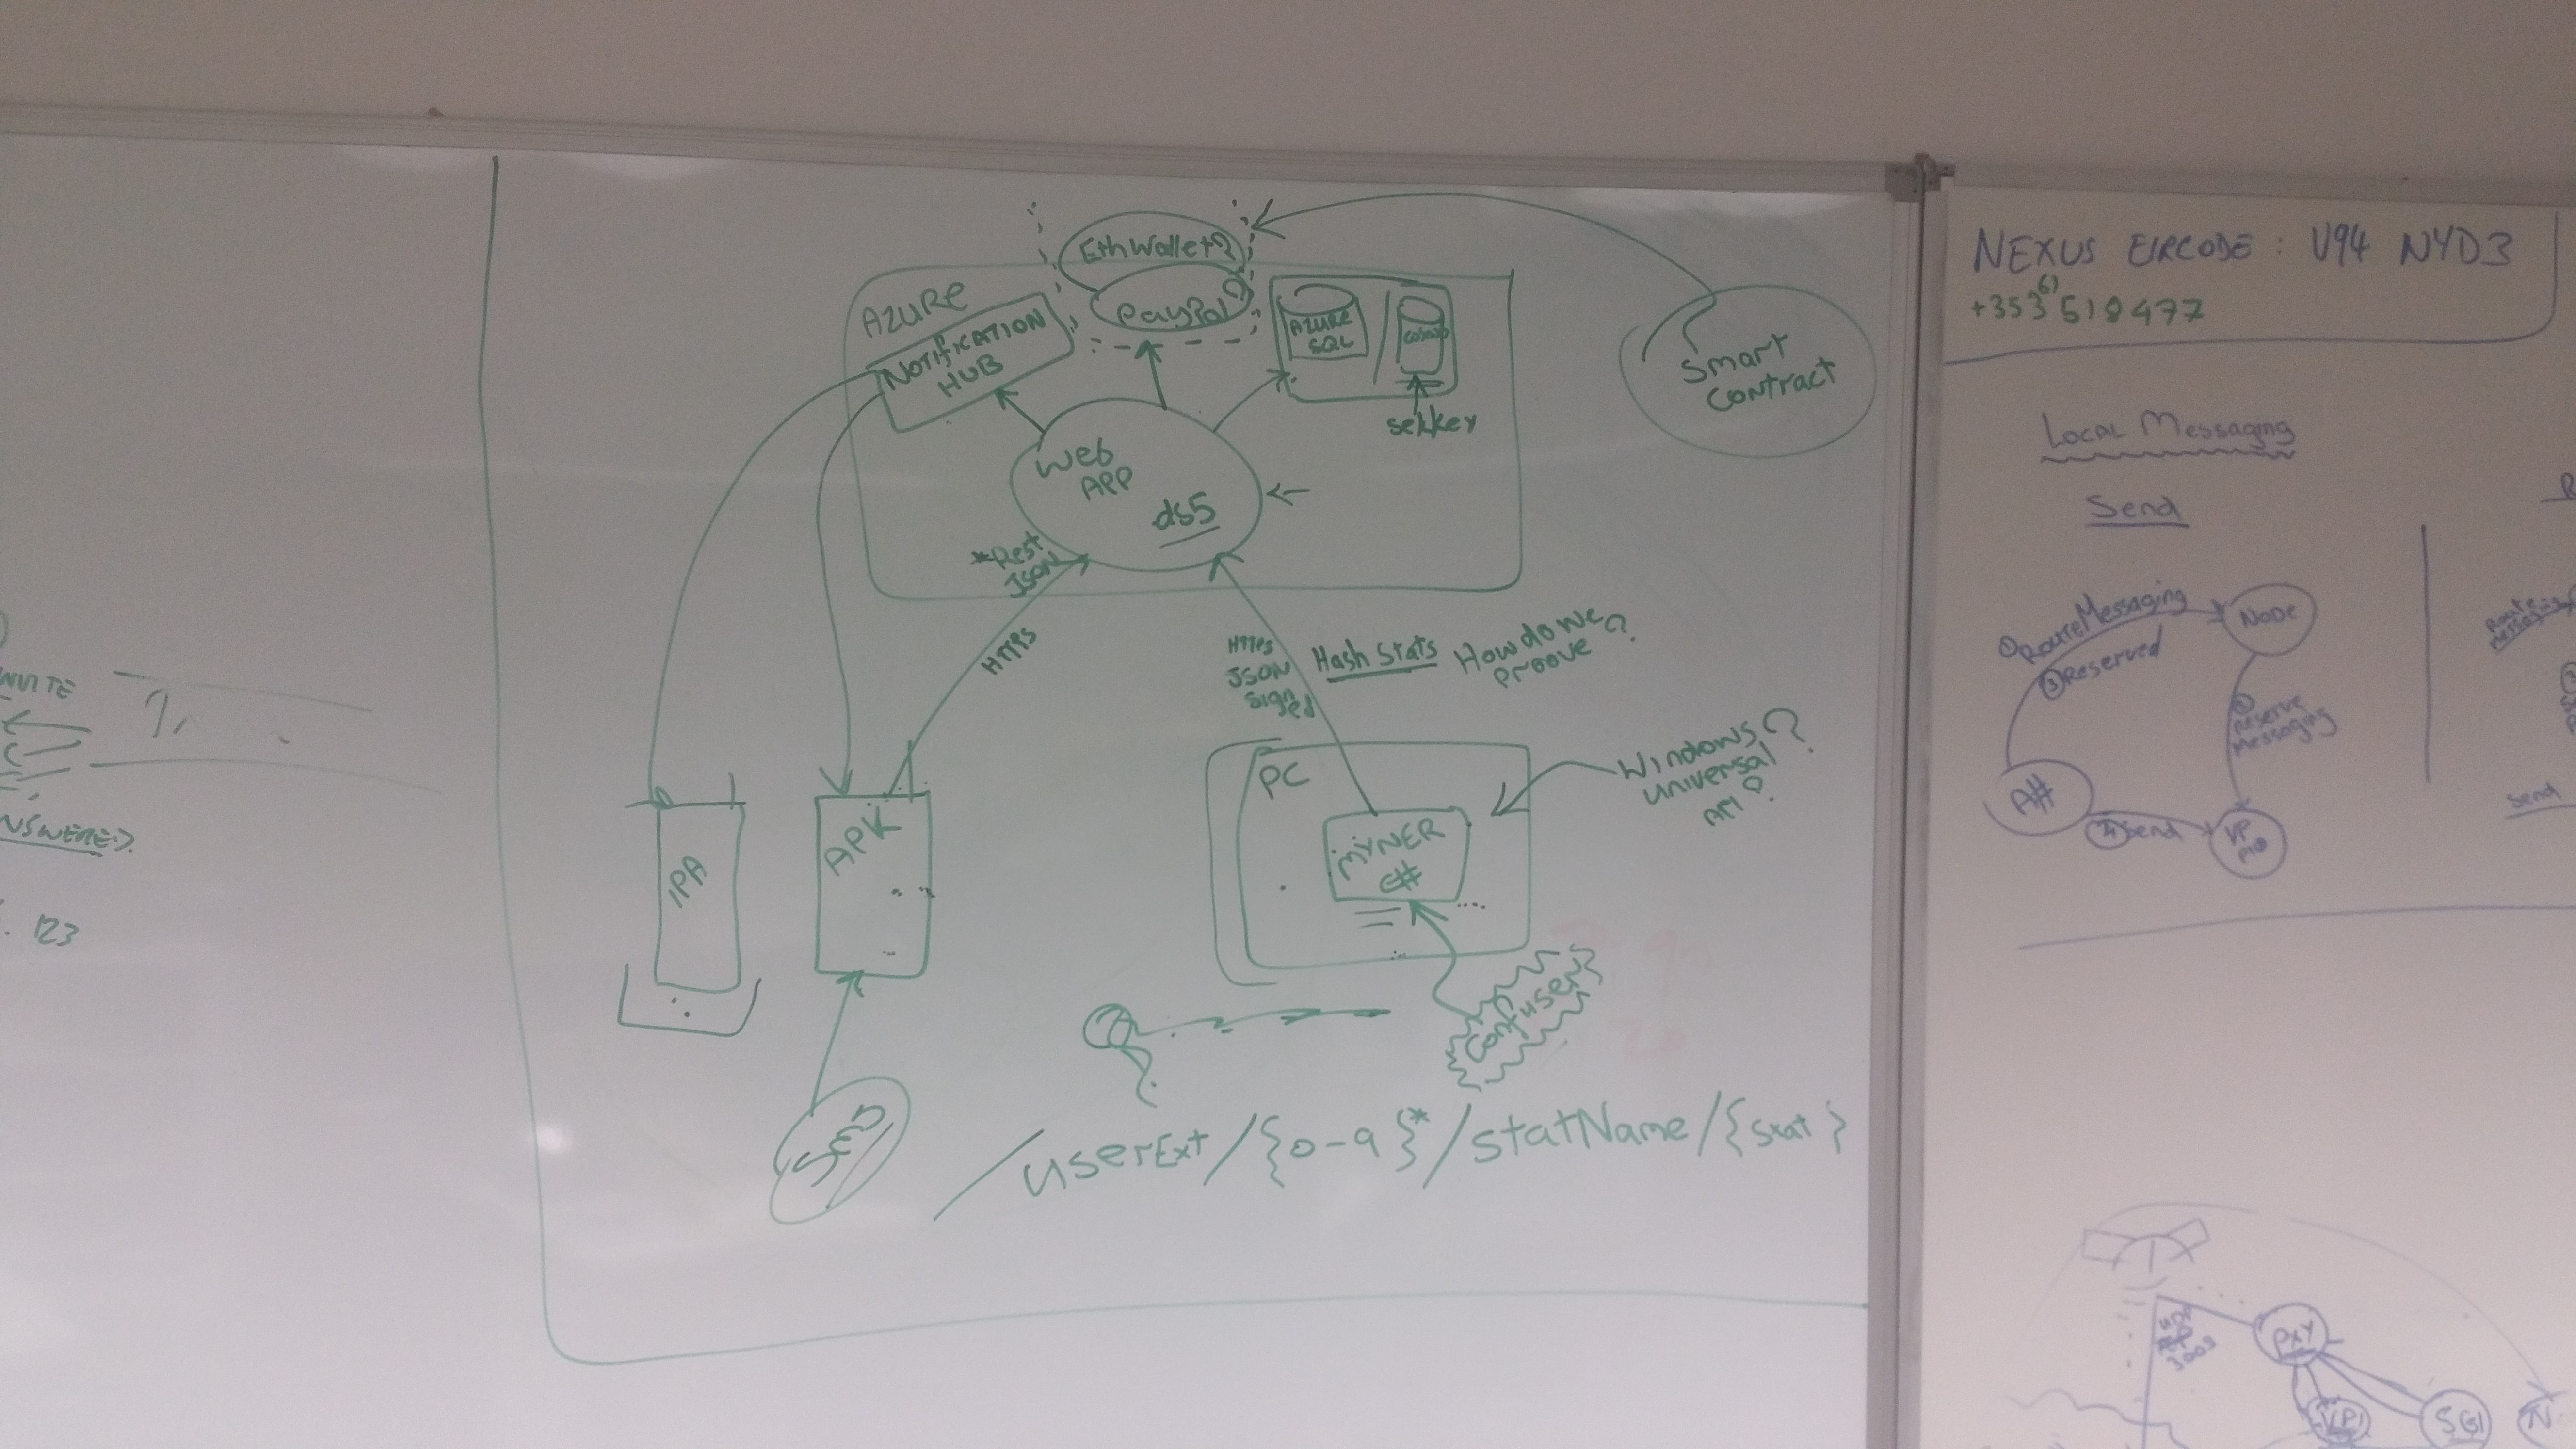 EthWallet?
PayPal?
AZURE
NOTIFICATION
HUB
AZURE
SQL
sekkey
Smart
Contract
Web
APP
ds5
*Rest
JSON
HTTPS
HTTPS
JSON
Signed
Hash Stats
How do we
proove?
PC
MYNER
C#
Windows?
Universal
API?
IPA
APK
Confuser
/userExt/{0-9}*/statName/{stat}
NVITE
NSWERED
123
NEXUS EIRCODE: V94 NYD3
+353 61 518477
Local Messaging
Send
① RouteMessaging
③ Reserved
Node
② Reserve
Messaging
A#
④ Send
VP
Send
3003
PXY
VP1
SG1
N